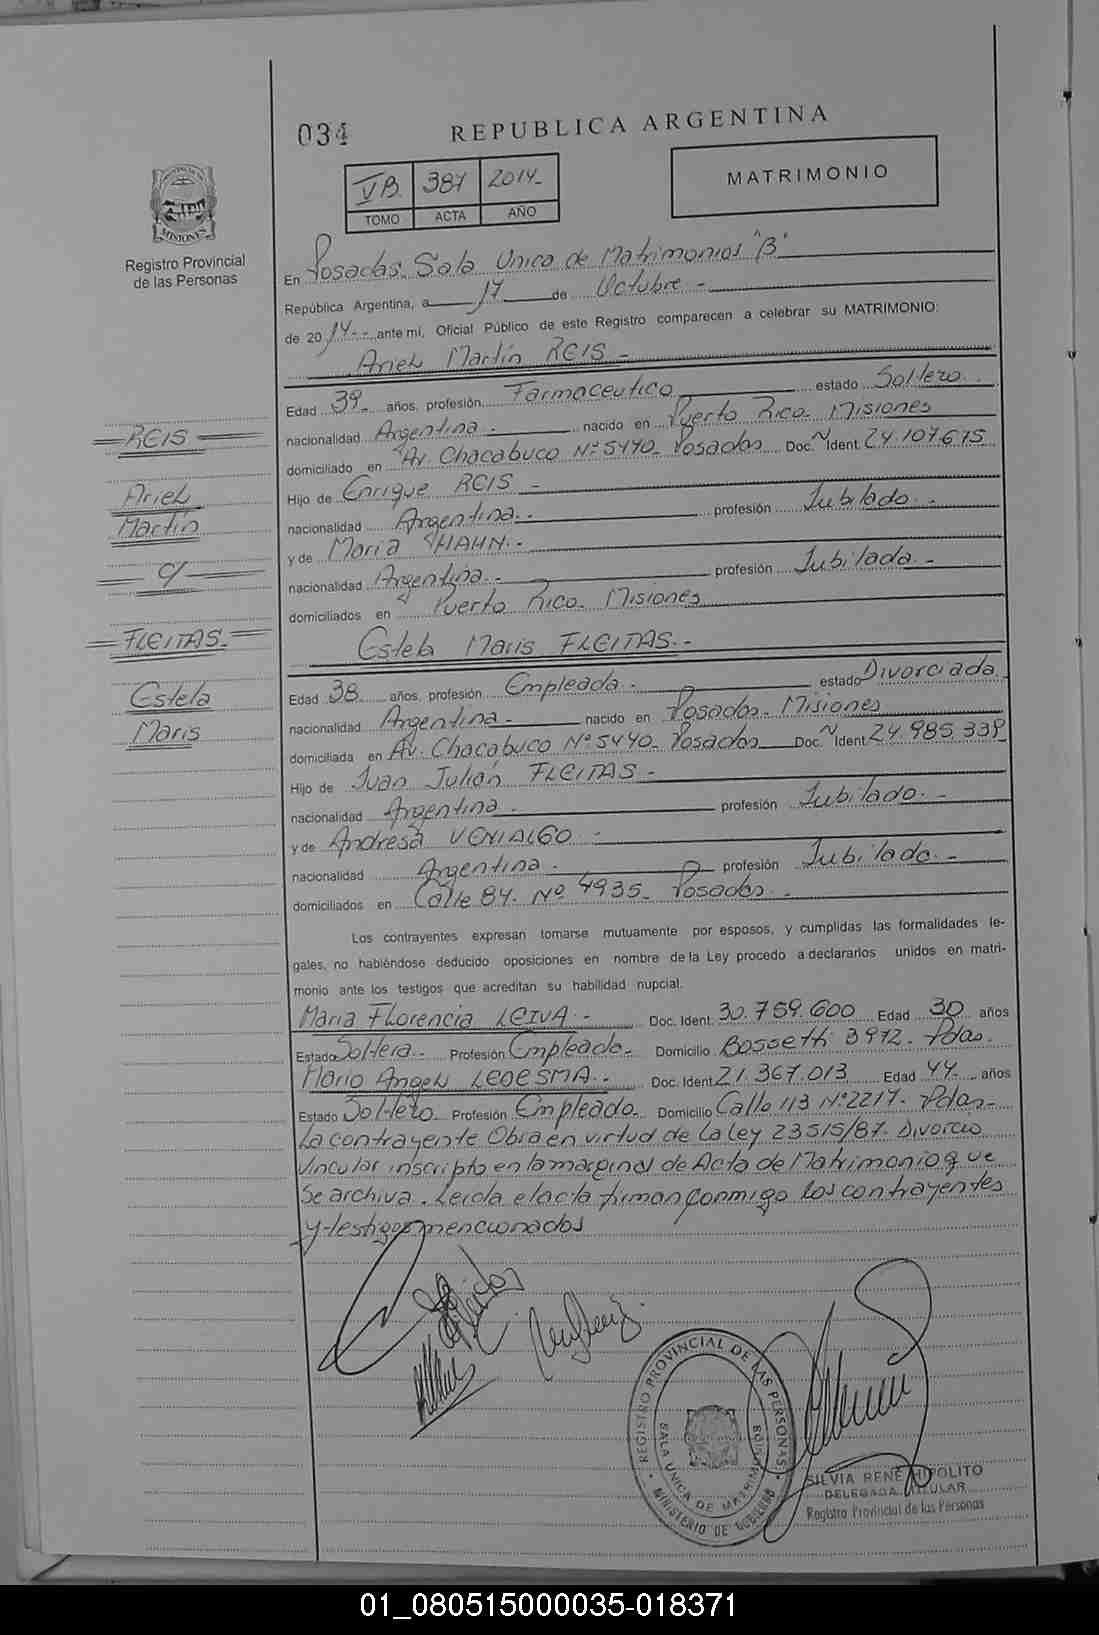 034
REPUBLICA ARGENTINA
VB 387 2014-
TOMO ACTA AÑO
MATRIMONIO
MISIONES
Registro Provincial
de las Personas
En Posadas. Sala Unica de Matrimonios "B"
República Argentina, a 17 de Octubre -
de 2014-- ante mí, Oficial Público de este Registro comparecen a celebrar su MATRIMONIO:
Ariel Martín REIS -
Edad 39- años, profesión Farmaceutico estado Soltero.
nacionalidad Argentina - nacido en Puerto Rico. Misiones
domiciliado en Av. Chacabuco Nº 5440- Posadas Doc. Ident. 24.107.675
Hijo de Enrique REIS -
nacionalidad Argentina.- profesión Jubilado.-
y de Maria HAHN.-
nacionalidad Argentina.- profesión Jubilada.-
domiciliados en Puerto Rico. Misiones
Estela Maris FLEITAS.-
Edad 38 años, profesión Empleada - estado Divorciada
nacionalidad Argentina - nacido en Posadas. Misiones
domiciliada en Av. Chacabuco Nº 5440- Posadas Doc. Ident. 24.985.339
Hijo de Juan Julián FLEITAS -
nacionalidad Argentina. profesión Jubilado.-
y de Andresa VENIALGO -
nacionalidad Argentina - profesión Jubilado.-
domiciliados en Calle 84. Nº 4935- Posadas. -
Los contrayentes expresan tomarse mutuamente por esposos, y cumplidas las formalidades le-
gales, no habiéndose deducido oposiciones en nombre de la Ley procedo a declararlos unidos en matri-
monio ante los testigos que acreditan su habilidad nupcial.
Maria Florencia LEIVA - Doc. Ident. 30.759.600 Edad 30 años
Estado Soltera- Profesión Empleada- Domicilio Bossetti 3972- Pdas.
Mario Angel LEDESMA.- Doc. Ident. 21.367.013 Edad 44- años
Estado Soltero- Profesión Empleado- Domicilio Calle 113 Nº2217- Pdas-
La contrayente Obra en virtud de la ley 23515/87. Divorcio
Vincular inscripto en la marginal de Acta de Matrimonio que
se archiva. Leida el acta firman conmigo los contrayentes
y testigos mencionados
REIS
Ariel
Martín
c/
FLEITAS-
Estela
Maris
REGISTRO PROVINCIAL DE LAS PERSONAS
SALA UNICA DE MATRIMONIOS
MINISTERIO DE GOBIERNO
SILVIA RENE HIPOLITO
DELEGADA TITULAR
Registro Provincial de las Personas
01_080515000035-018371